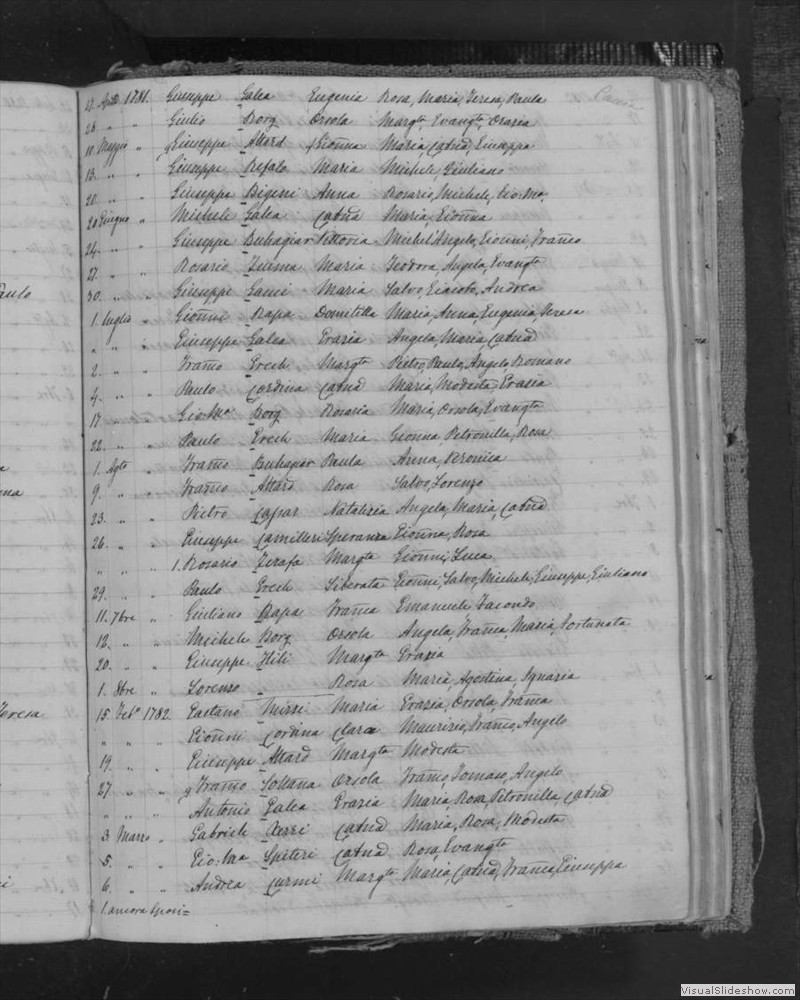 27. Aple 1781. Giuseppe Galea Eugenia Rosa, Maria, Teresa, Paula
28. " " Giulio Borg Orsola Margta, Evangta, Grazia
11. Maggio " Giuseppe Attard Gionna Maria, Catnd, Giuseppa
13. " " Giuseppe Refalo Maria Michele, Giuliano
20. " " Giuseppe Bigeni Anna Rosario, Michele, Gio: Ma.
20 Giugno " Michele Galea Catnd Maria, Gionna
24. " " Giuseppe Buhagiar Vittoria Michel'Angelo, Gionni, Franco
27. " " Rosario Maria Teodora, Angela, Evangta
30. " " Giuseppe Gauci Maria Salvo, Giacoto, Andrea
1. Luglio " Gionni Rapa Domitilla Maria, Anna, Eugenia, Teresa
" " " Giuseppe Galea Grazia Angela, Maria, Catnd
2. " " Franco Grech Margta Pietro, Paulo, Angelo, Romano
4. " " Paulo Cordina Catnd Maria, Modesta, Grazia
17. " " Gio: Ma Borg Rosaria Maria, Orsola, Evangta
22. " " Paulo Grech Maria Gionna Petronilla, Rosa
1. Agto " Franco Buhagiar Paula Anna, Veronica
9. " " Franco Attard Rosa Salvo, Lorenzo
23. " " Pietro Caspar Natalizia Angela, Maria, Catnd
26. " " Giuseppe Camilleri Speranza Gionna, Rosa
" " " 1. Rosario Zerafa Margta Gionni, Luca
29. " " Paulo Grech Liberata Gionni, Salvo, Michele, Giuseppe, Giuliano
11. 7bre " Giuliano Rapa Franca Emanuele Facondo
12. " " Michele Borg Orsola Angela, Franca, Maria, Fortunata
20. " " Giuseppe Hili Margta Grazia
1. 8bre " Lorenzo Rosa Maria, Agostina, Ignazia
15. Febo 1782. Gaetano Mizzi Maria Grazia, Orsola, Franca
" " " Gionni Cordina Clara Maurizio, Franco, Angelo
19. " " Giuseppe Attard Margta Modesta
27. " " Franco Soltana Orsola Franco, Tomaso, Angelo
" " " Antonio Galea Grazia Maria Rosa, Petronilla, Catnd
3. Marzo " Gabriele Xerri Catnd Maria, Rosa, Modesta
5. " " Gio: Bta Spiteri Catnd Rosa, Evangta
6. " " Andrea Curmi Margta Maria, Catnd, Franca, Giuseppa
1. ancora sposi=
Paulo
Teresa
VisualSlideshow.com